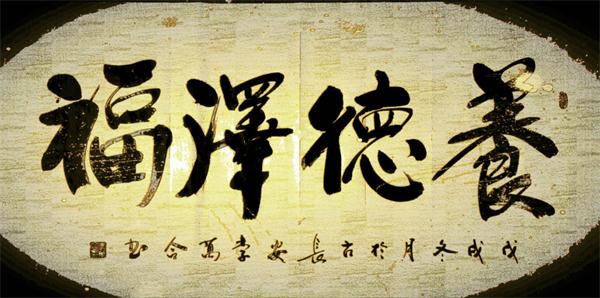 養德澤福
戊戌冬月於古長安李萬合書